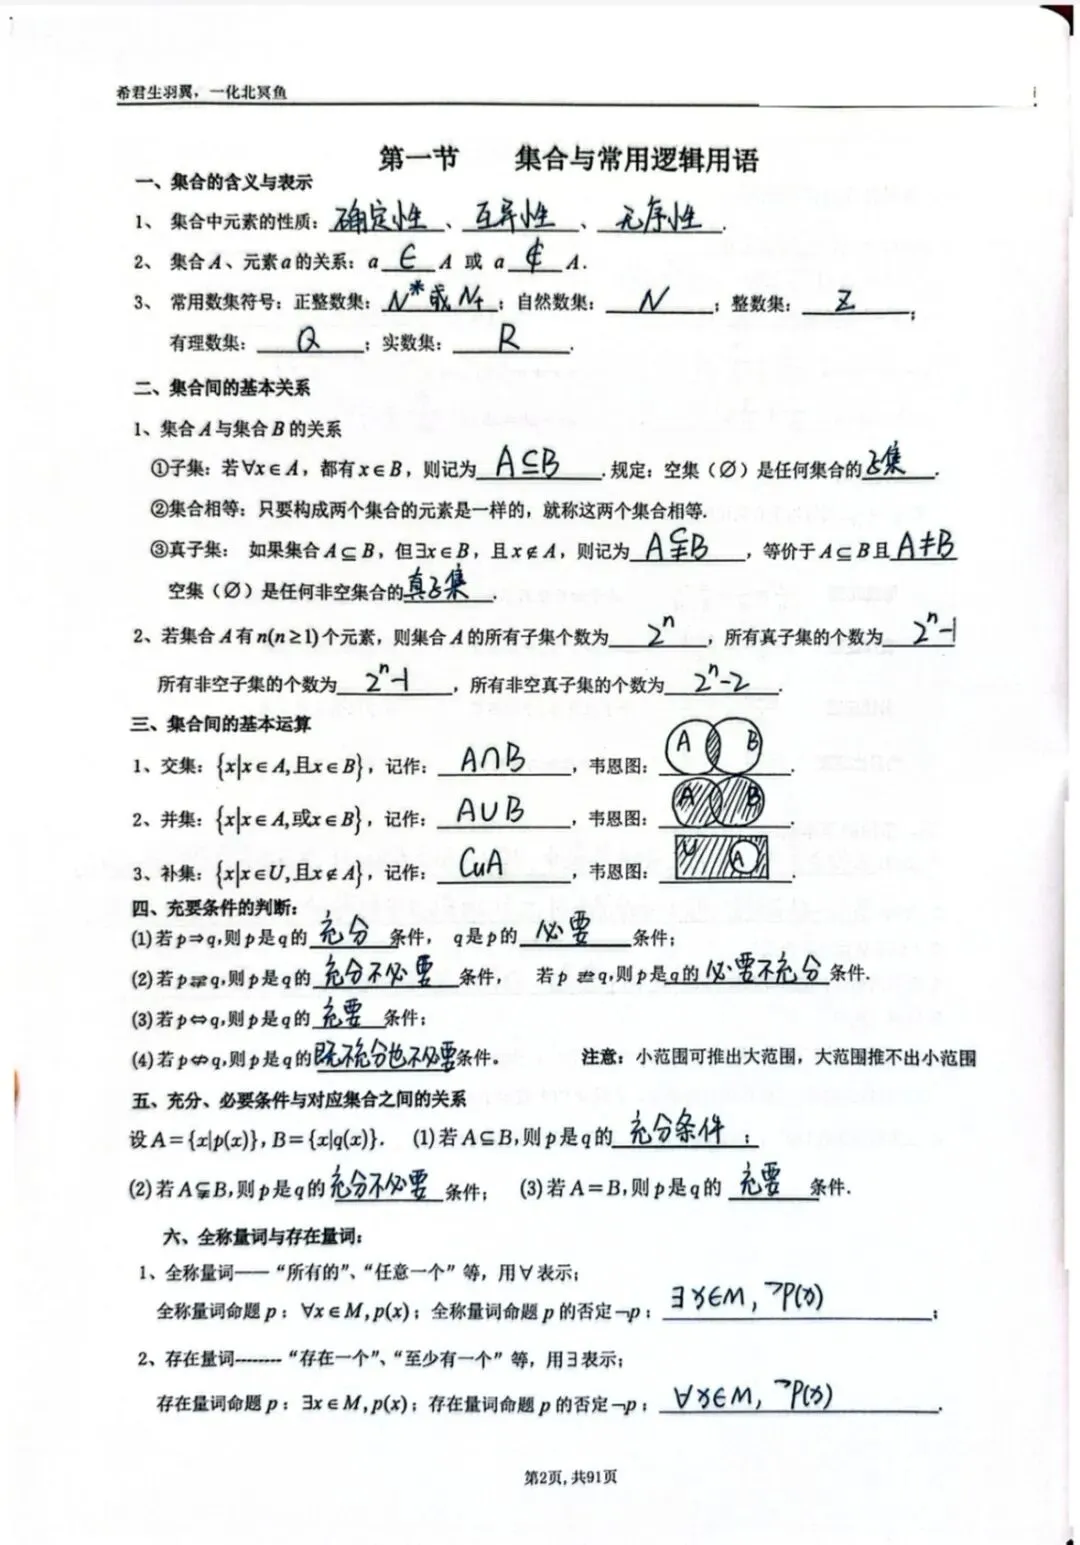 希君生羽翼，一化北冥鱼
第一节 集合与常用逻辑用语
一、集合的含义与表示
1、 集合中元素的性质：确定性、互异性、无序性.
2、 集合A、元素a的关系：a∈A 或 a∉A.
3、 常用数集符号：正整数集：N*或N₊；自然数集：N；整数集：Z；
有理数集：Q；实数集：R.
二、集合间的基本关系
1、集合A与集合B的关系
①子集：若∀x∈A，都有x∈B，则记为A⊆B.规定：空集（∅）是任何集合的子集.
②集合相等：只要构成两个集合的元素是一样的，就称这两个集合相等.
③真子集： 如果集合A⊆B，但∃x∈B，且x∉A，则记为A⫋B，等价于A⊆B且A≠B
空集（∅）是任何非空集合的真子集.
2、若集合A有n(n≥1)个元素，则集合A的所有子集个数为2ⁿ，所有真子集的个数为2ⁿ-1
所有非空子集的个数为2ⁿ-1，所有非空真子集的个数为2ⁿ-2.
三、集合间的基本运算
1、交集：{x|x∈A,且x∈B}，记作：A∩B，韦恩图：A B.
2、并集：{x|x∈A,或x∈B}，记作：A∪B，韦恩图：A B.
3、补集：{x|x∈U,且x∉A}，记作：CuA，韦恩图：U A.
四、充要条件的判断：
(1)若p⇒q,则p是q的充分条件， q是p的必要条件；
(2)若p⇏q,则p是q的充分不必要条件， 若p⇍q,则p是q的必要不充分条件.
(3)若p⇔q,则p是q的充要条件；
(4)若p⇎q,则p是q的既不充分也不必要条件。 注意：小范围可推出大范围，大范围推不出小范围
五、充分、必要条件与对应集合之间的关系
设A={x|p(x)}, B={x|q(x)}. (1)若A⊆B,则p是q的充分条件；
(2)若A⫋B,则p是q的充分不必要条件； (3)若A=B,则p是q的充要条件.
六、全称量词与存在量词：
1、全称量词——“所有的”、“任意一个”等，用∀表示；
全称量词命题p：∀x∈M,p(x)；全称量词命题p的否定¬p：∃x∈M，¬P(x)；
2、存在量词--------“存在一个”、“至少有一个”等，用∃表示；
存在量词命题p：∃x∈M,p(x)；存在量词命题p的否定¬p：∀x∈M，¬P(x).
第2页, 共91页